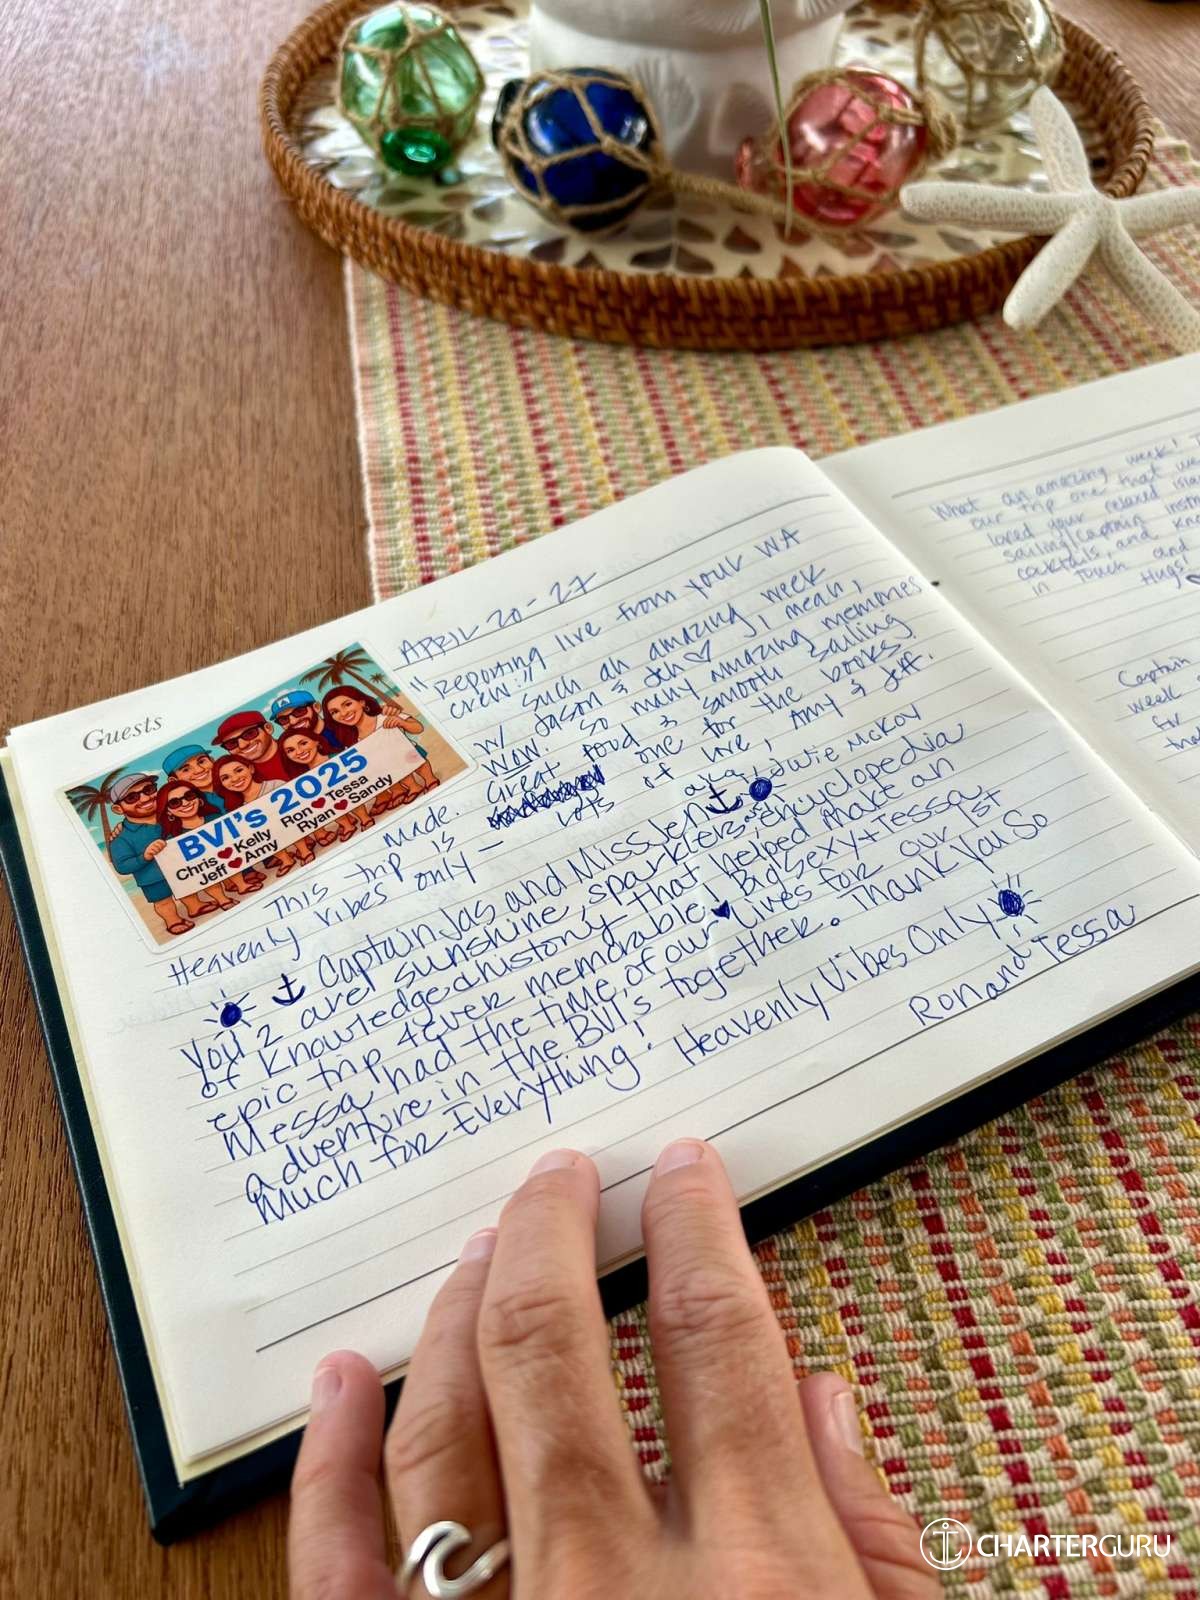 Guests
BVI's 2025
Chris ♥ Kelly Ron ♥ Tessa
Jeff ♥ Amy Ryan ♥ Sandy
APRIL 20-27
"Reporting live from your WA
crew:"
w/ Such an amazing week
Jason & Jen ♡ I mean,
Wow. So many amazing memories
made. Great food & smooth sailing
This trip is one for the books.
Heavenly vibes only - Lots of love, Amy & Jeff.
aka
⚓ Captain Jas and Miss Jen ⚓
You 2 are sunshine, sparklers, and encyclopedia
of knowledge & history that helped make an
epic trip 4ever memorable! Big Sexy + Tessa
Messa had the time of our ♥ lives for our 1st
adventure in the BVI's together. Thank You So
Much for Everything! Heavenly Vibes Only
Ron and Tessa
What an amazing week!
our trip one that we
loved your relaxed
sailing/captain
cocktails, and
in touch and
Hugs!
Captain
week
for
CHARTERGURU